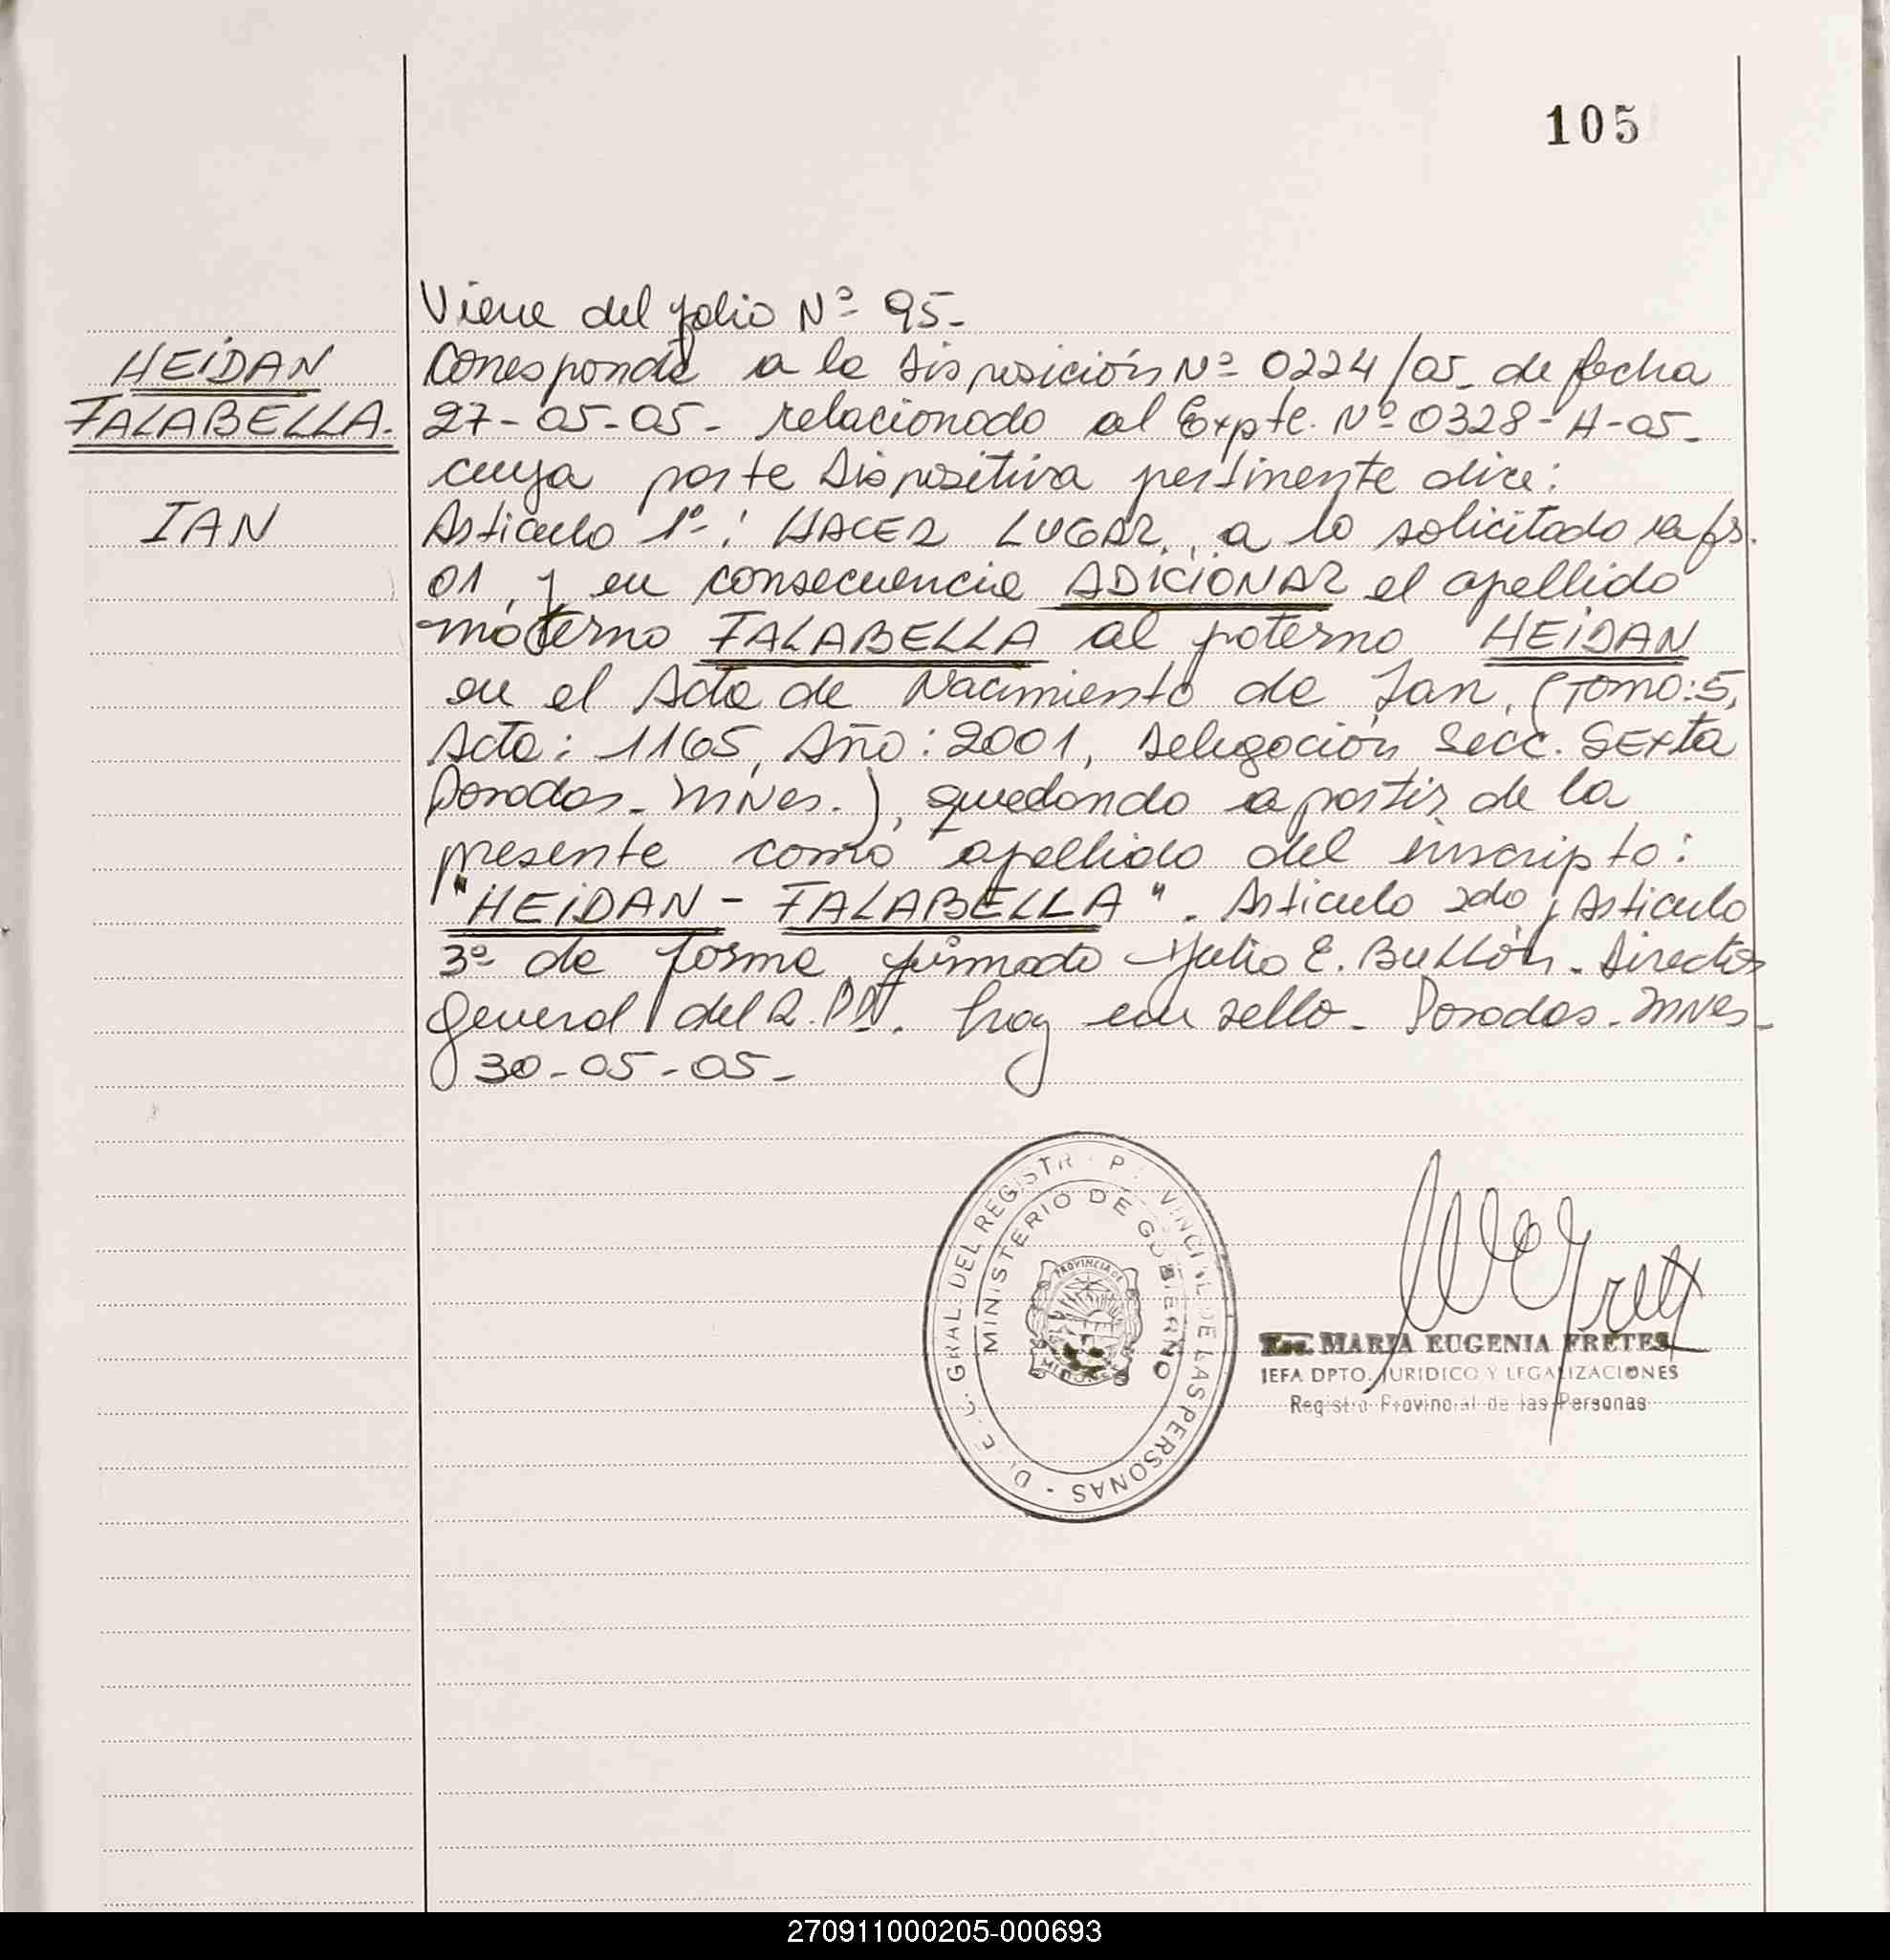 105
Viene del folio Nº 95-
HEIDAN
FALABELLA.
IAN
Corresponde a la Disposición Nº 0224/05- de fecha
27-05-05- relacionado al Expte. Nº 0328-H-05-
cuya parte Dispositiva pertinente dice:
Articulo 1º: HACER LUGAR, a lo solicitado a fs.
01, y en consecuencia ADICIONAR el apellido
materno FALABELLA al paterno HEIDAN
en el Acta de Nacimiento de Ian, (Tomo: 5,
Acta: 1165, Año: 2001, Delegación Secc. Sexta
Posadas- Mnes.), quedando a partir de la
presente como apellido del inscripto:
"HEIDAN - FALABELLA". Articulo 2do y Articulo
3º de forma, firmado Julio E. Bullón- Director
General del R.PP. hay un sello- Posadas- Mnes-
30-05-05-
D. E. C. GRAL. DEL REGISTR P VINCIAL DE LAS PERSONAS -
MINISTERIO DE GOBIERNO
PROVINCIA DE
MISIONES
Esc. MARIA EUGENIA FRETES
JEFA DPTO. JURIDICO Y LEGALIZACIONES
Registro Provincial de las Personas
270911000205-000693